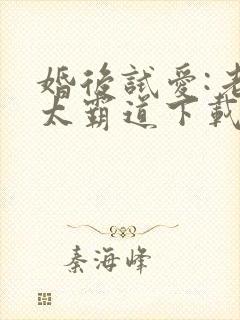 婚後試愛:老
太霸道下載
秦海峰